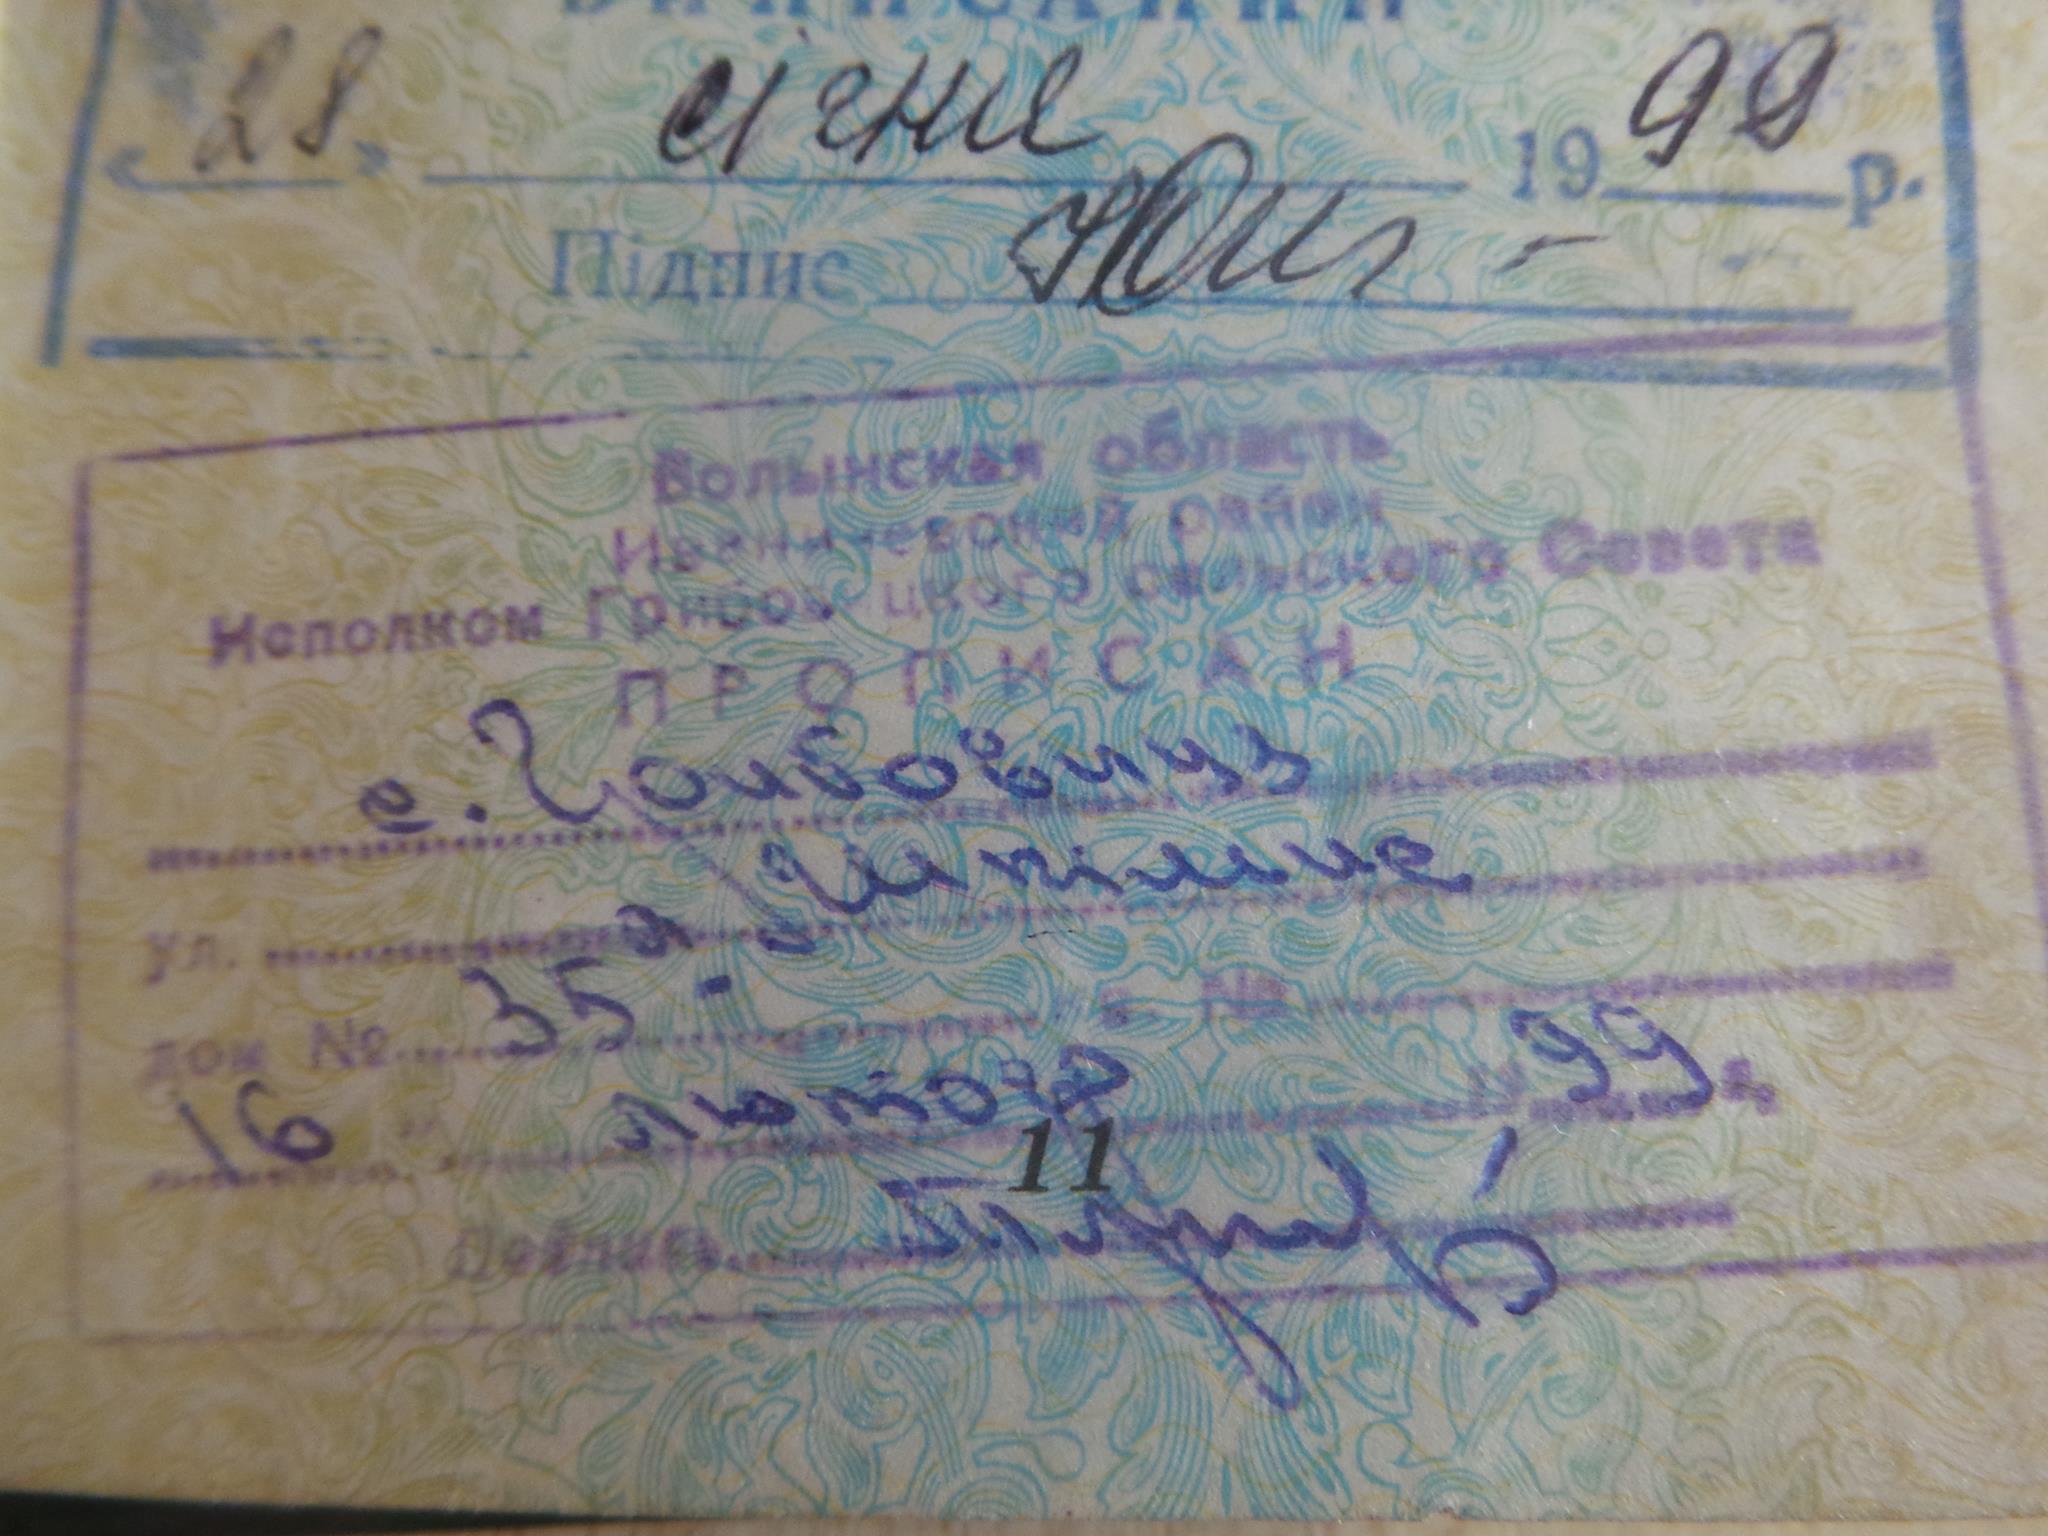 ВИПИСАНИЙ
« 28 » січня 1999 р.
Підпис
Волынская область
Иваничевский район
Исполком Грибовицкого сельского Совета
ПРОПИСАН
с. Грибовиця
ул.
дом № 35а - № 
16 " лютого 1999 г.
11
Подпись